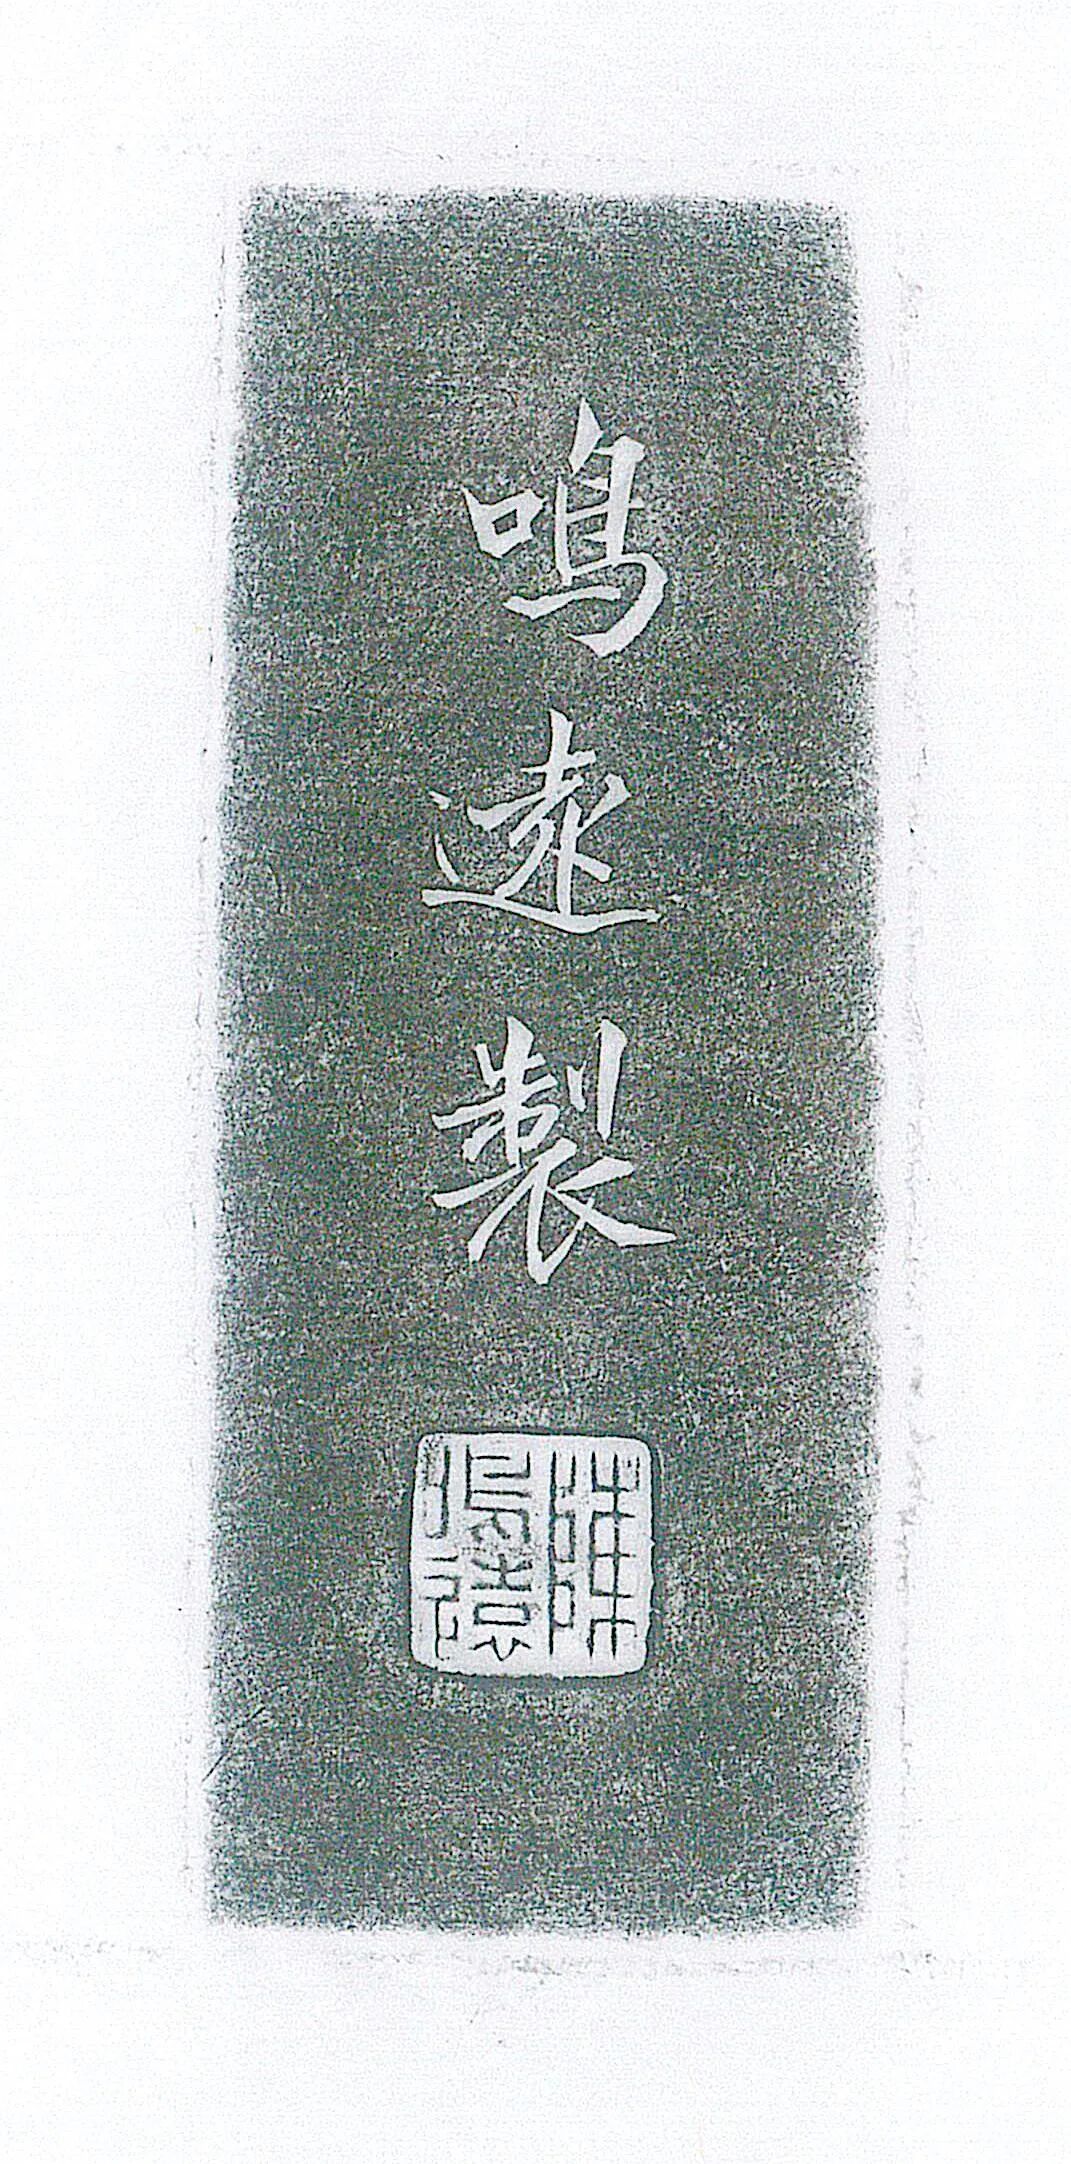 鳴遠製
陳
鳴遠